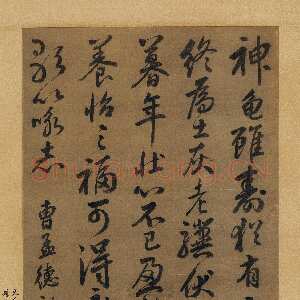 神龜雖壽猶有
終爲土灰老驥伏
暮年壯心不已盈
養怡之福可得
歌以詠志 曹孟德